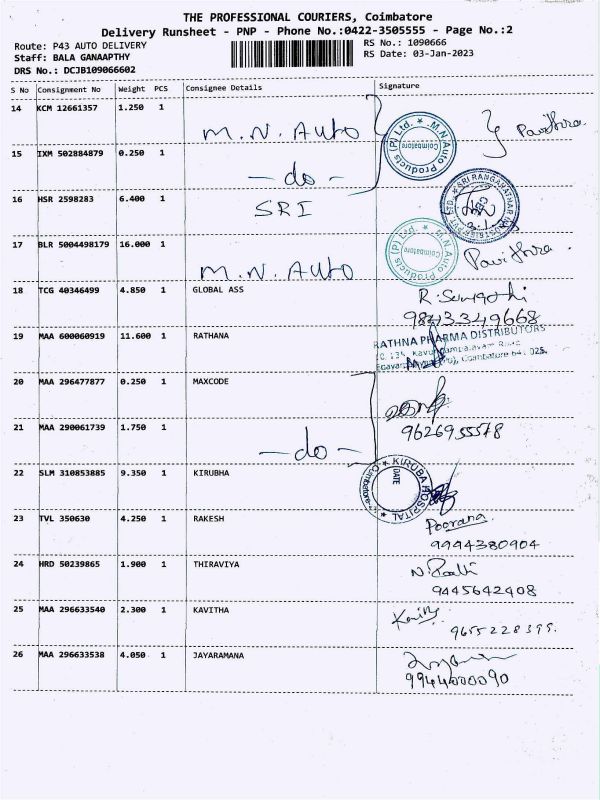 THE PROFESSIONAL COURIERS, Coimbatore
Delivery Runsheet - PNP - Phone No.:0422-3505555 - Page No.:2
Route: P43 AUTO DELIVERY
RS No.: 1090666
Staff: BALA GANAAPTHY
RS Date: 03-Jan-2023
DRS No.: DCJB109066602
S No Consignment No Weight PCS Consignee Details Signature
14 KCM 12661357 1.250 1 M.N. Auto Pavithra
M.N. Auto Products (P) Ltd. Coimbatore
15 IXM 502884879 0.250 1 - do -
16 HSR 2598283 6.400 1 SRI
17 BLR 5004498179 16.000 1 M.N. Auto Pavithra
M.N. Auto Products (P) Ltd. Coimbatore
18 TCG 40346499 4.850 1 GLOBAL ASS
9843349668
19 MAA 600060919 11.600 1 RATHANA
RATHNA PHARMA DISTRIBUTORS
Coimbatore 641 025.
20 MAA 296477877 0.250 1 MAXCODE
21 MAA 290061739 1.750 1 - do -
9626955578
22 SLM 310853885 9.350 1 KIRUBHA
KIRUBA HOSPITAL Coimbatore DATE
23 TVL 350630 4.250 1 RAKESH
Poorana.
9994380904
24 HRD 50239865 1.900 1 THIRAVIYA
9445642408
25 MAA 296633540 2.300 1 KAVITHA
26 MAA 296633538 4.050 1 JAYARAMANA
9944000090